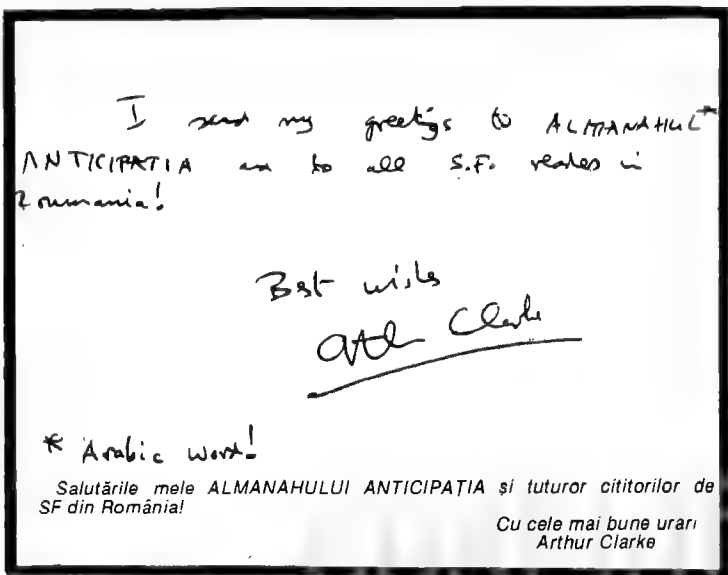 I send my greetings to ALMANAHUL*
ANTICIPATIA and to all S.F. readers in
Roumania!
Best wishes
Arthur Clarke
* Arabic word!
Salutările mele ALMANAHULUI ANTICIPAȚIA și tuturor cititorilor de
SF din România!
Cu cele mai bune urări
Arthur Clarke